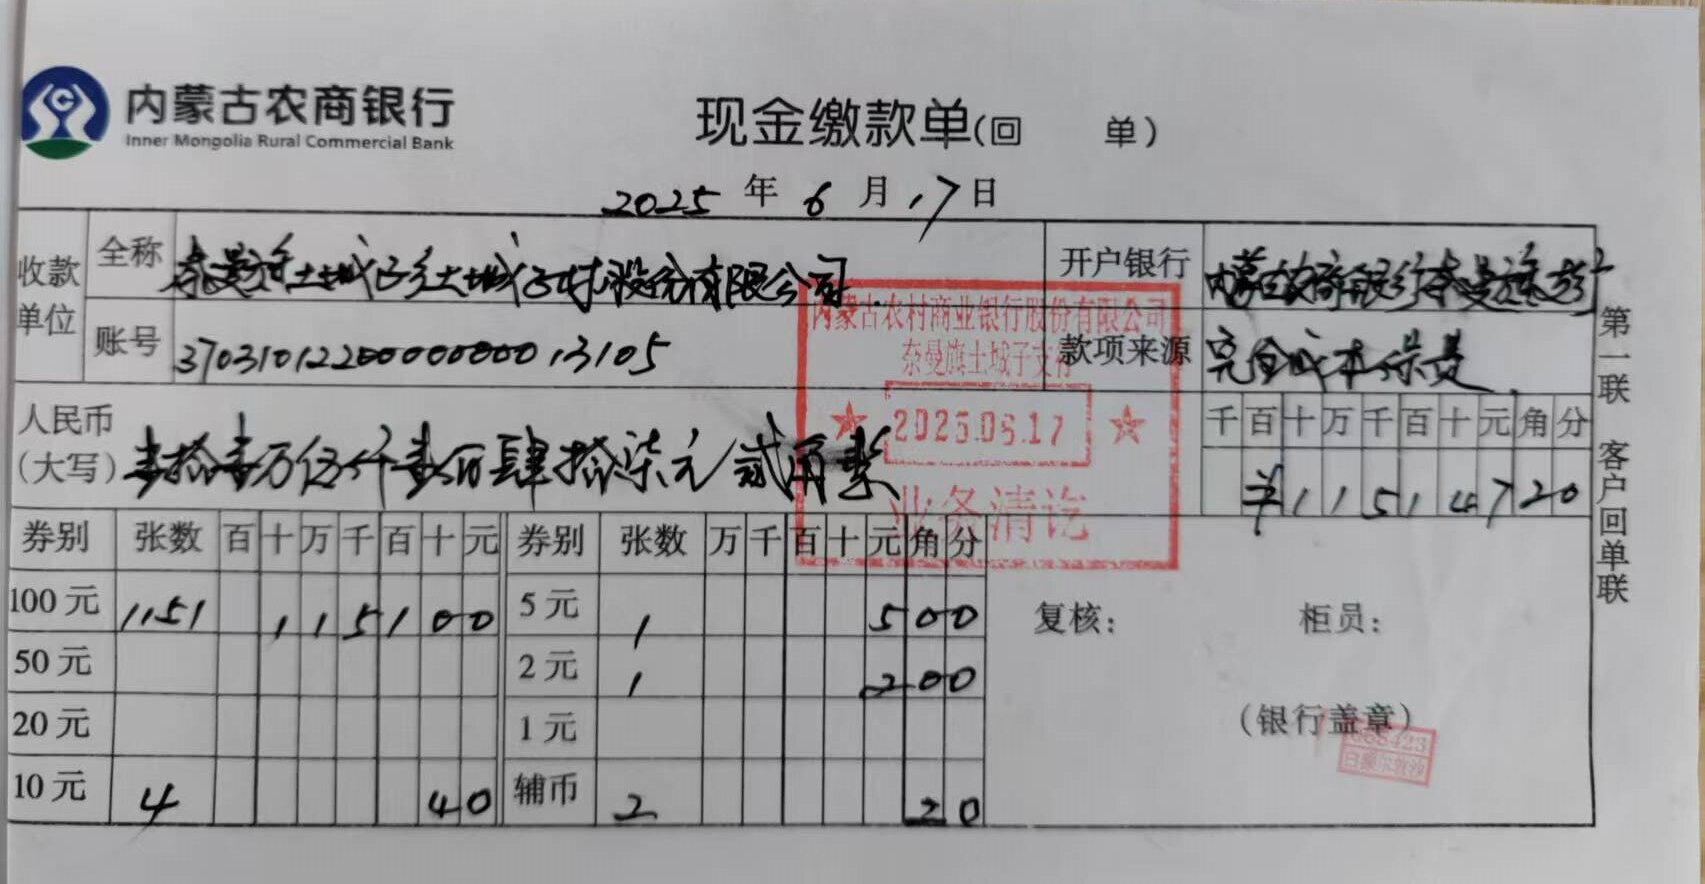 内蒙古农商银行
Inner Mongolia Rural Commercial Bank
现金缴款单(回 单)
2025 年 6 月 17 日
收款单位 全称 奈曼旗土城子乡土城子村股份有限公司 开户银行 内蒙古农商银行奈曼旗
账号 37031012200000000013105 款项来源 完全成本保费
人民币(大写) 壹拾壹万伍仟壹百肆拾柒元贰角整
千 百 十 万 千 百 十 元 角 分
¥ 1 1 5 1 4 7 2 0
券别 张数 百 十 万 千 百 十 元 券别 张数 万 千 百 十 元 角 分
100元 1151 1 1 5 1 0 0 5元 1 5 0 0
50元 2元 1 2 0 0
20元 1元
10元 4 4 0 辅币 2 2 0
复核: 柜员:
(银行盖章)
第一联 客户回单联
内蒙古农村商业银行股份有限公司
奈曼旗土城子支行
2025.06.17
业务清讫